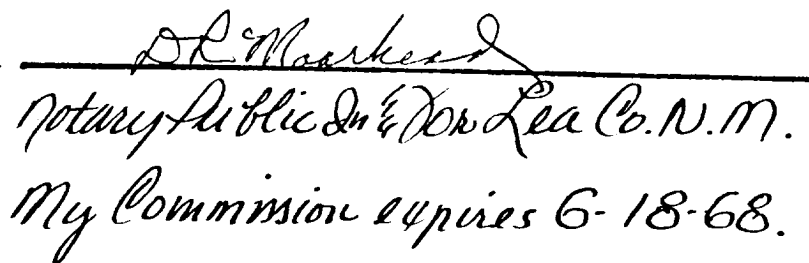 D R Moorhead
Notary Public In & For Lea Co. N. M.
My Commission expires 6-18-68.